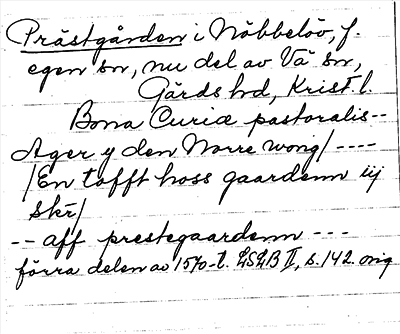 Prästgården i Nöbbelöv, f.
egen sn, nu del av Vä sn,
Gärds hd, Krist. l.
Bona Curiæ pastoralis--
Ager y den Norre wong/ ----
/En tofft hoss gaardenn iij
Skr/
-- aff prestegaardenn ---
förra delen av 1570-t. LSLB II, s. 142. orig